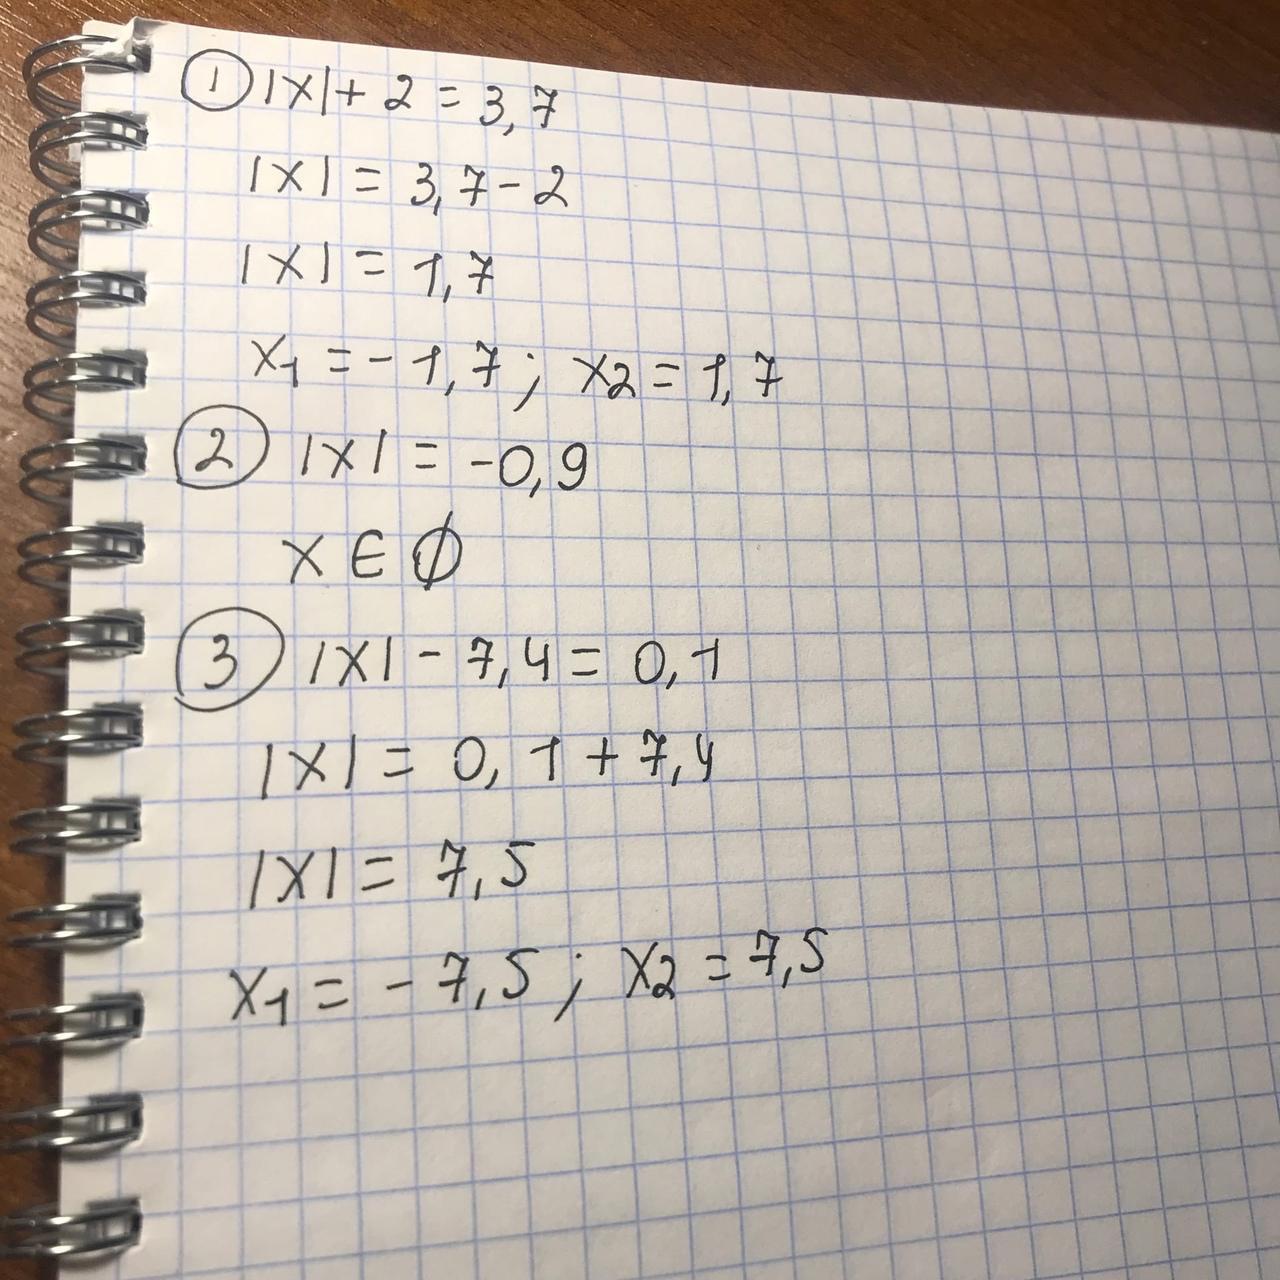 ① |x| + 2 = 3,7
|x| = 3,7 - 2
|x| = 1,7
x₁ = - 1,7 ; x₂ = 1,7
② |x| = -0,9
x ∈ ∅
③ |x| - 7,4 = 0,1
|x| = 0,1 + 7,4
|x| = 7,5
x₁ = - 7,5 ; x₂ = 7,5